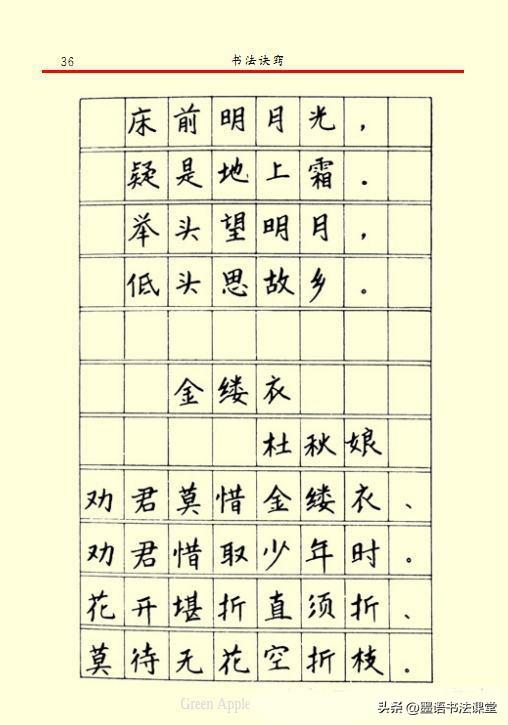 36 书法诀窍
床前明月光，
疑是地上霜。
举头望明月，
低头思故乡。
金缕衣
杜秋娘
劝君莫惜金缕衣、
劝君惜取少年时。
花开堪折直须折、
莫待无花空折枝。
Green Apple
头条 @墨语书法课堂